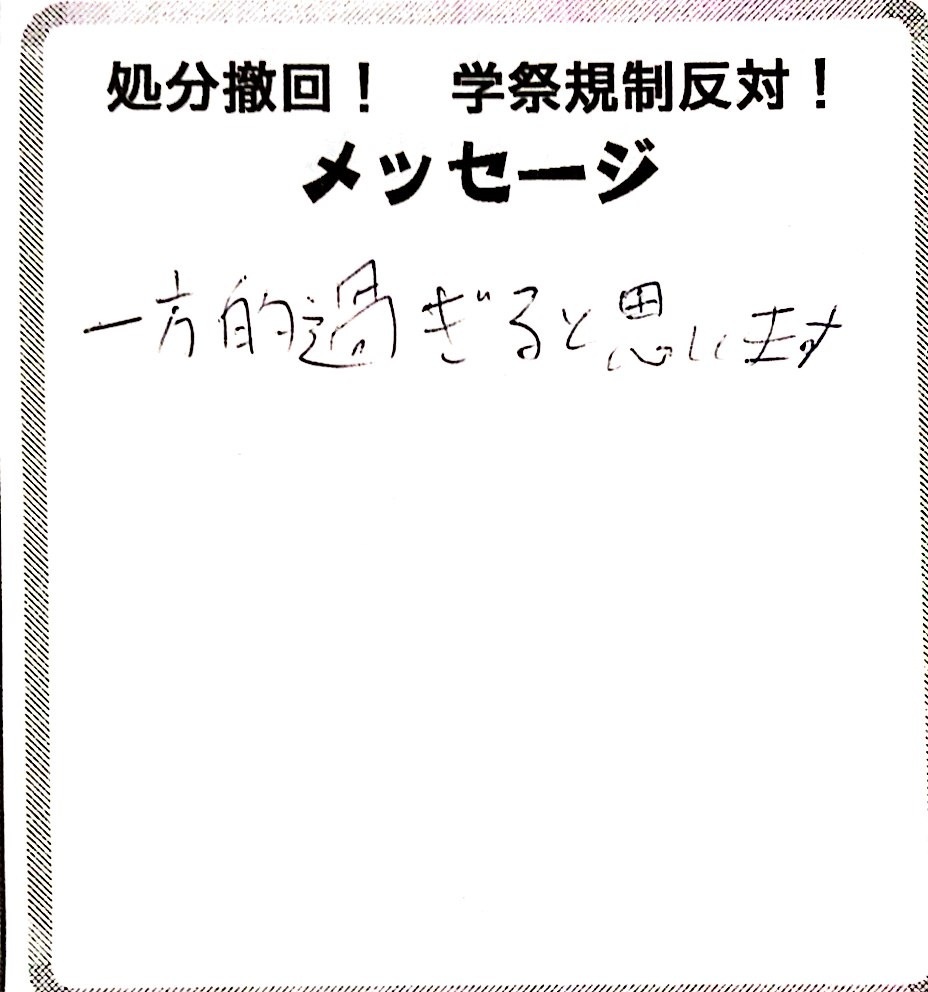 処分撤回！　学祭規制反対！
メッセージ
一方的過ぎると思います